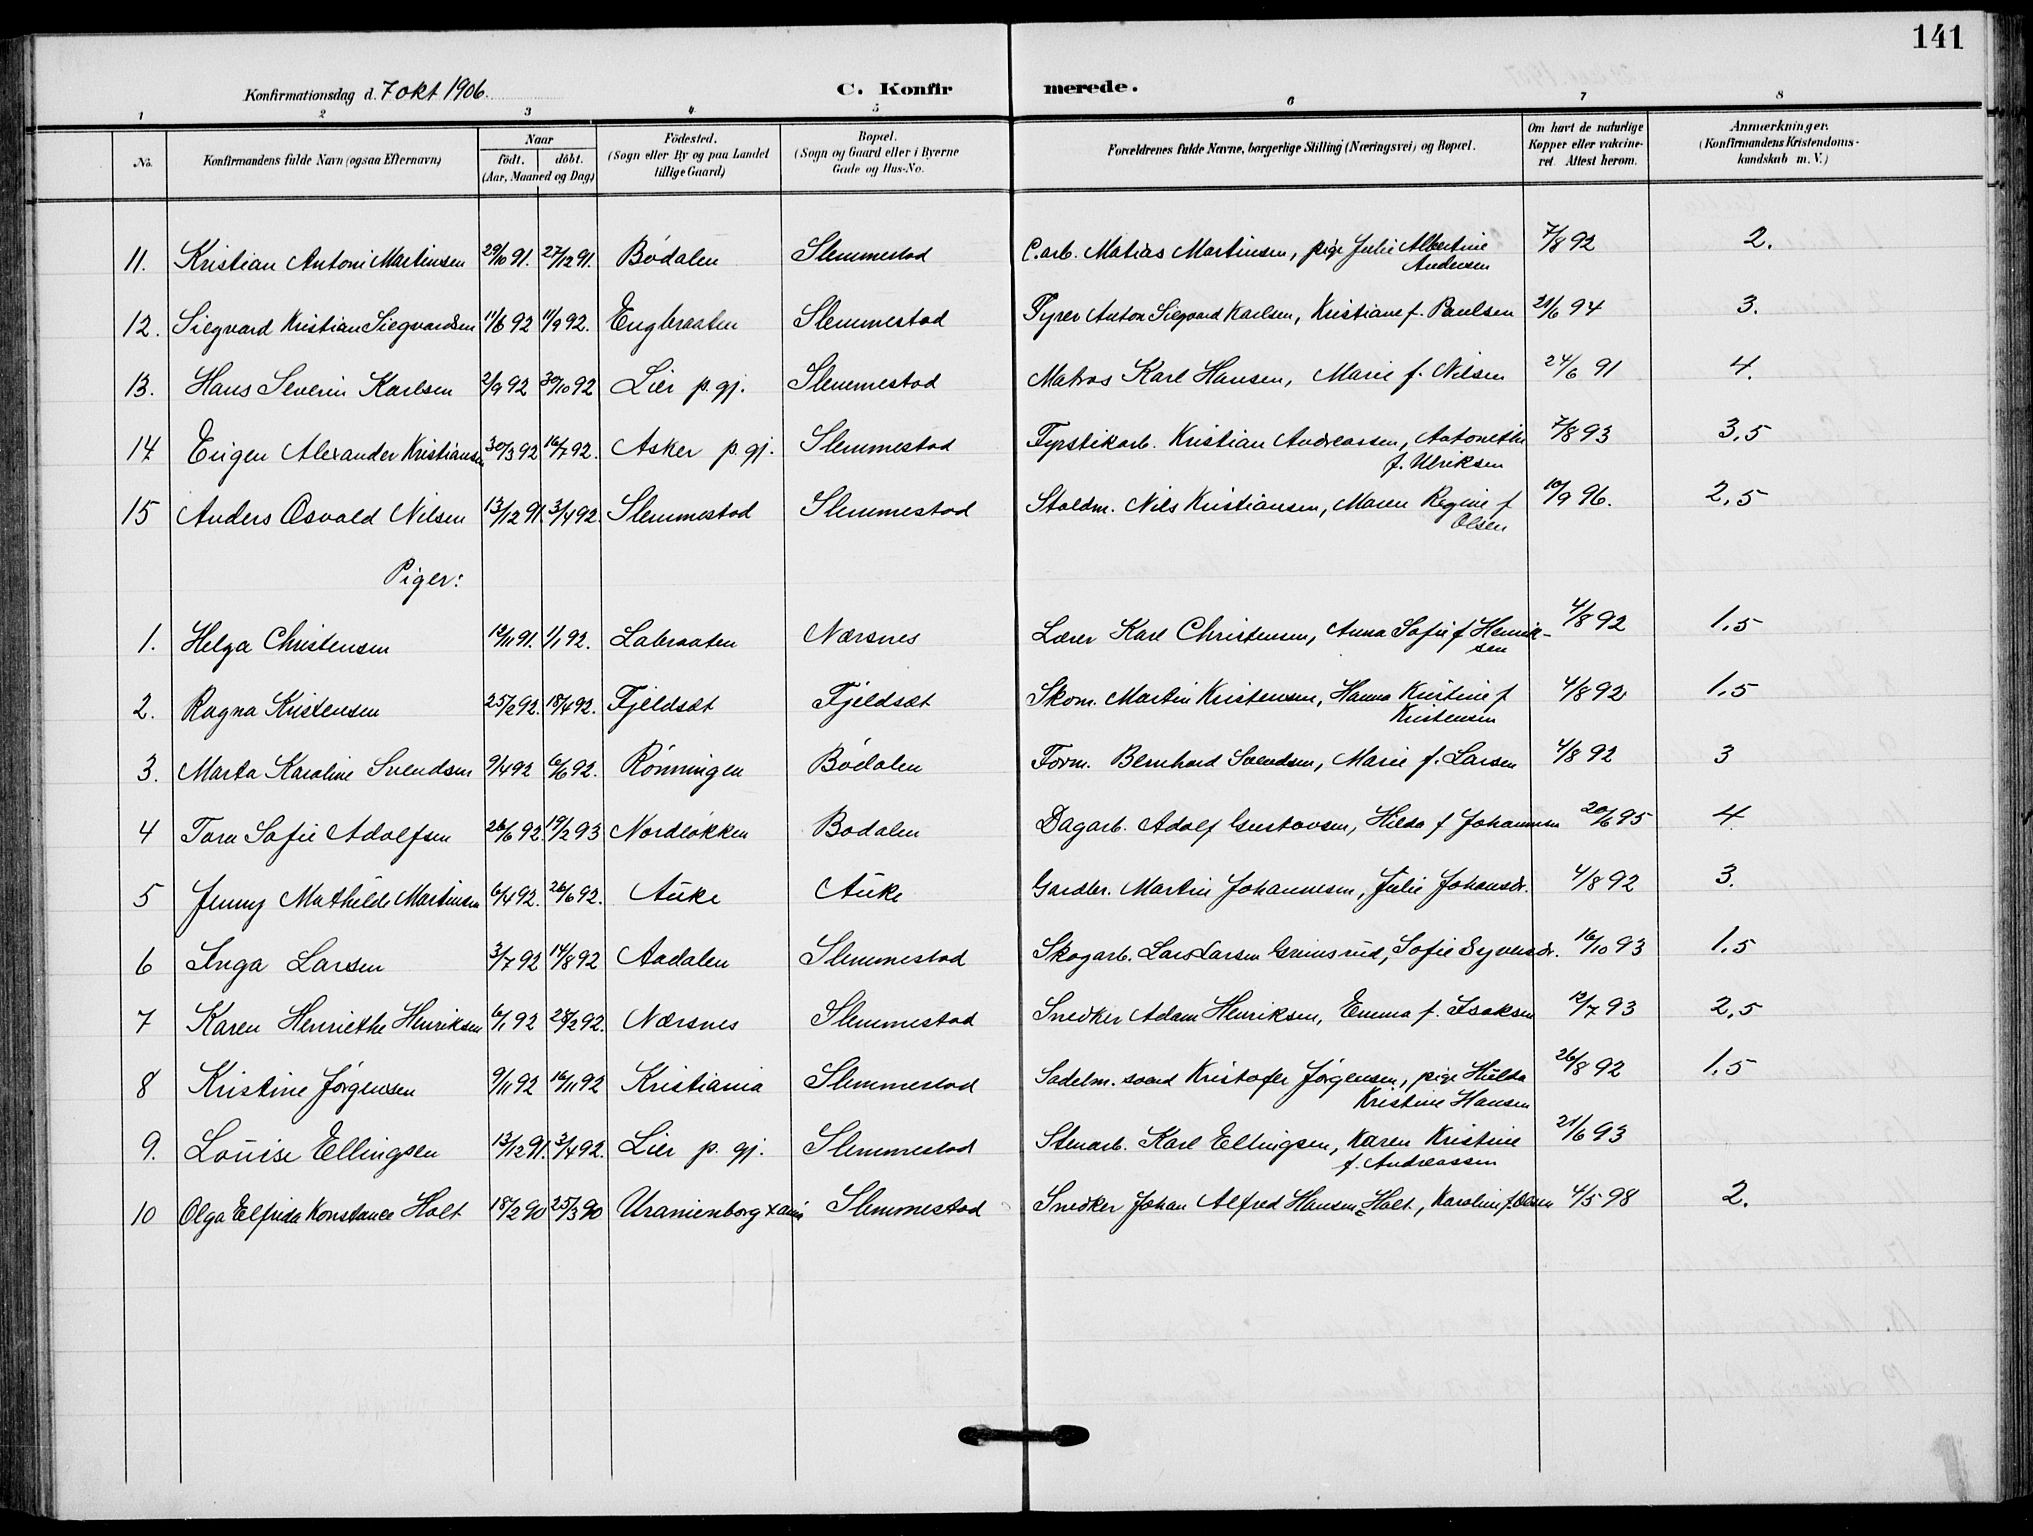 141
Konfirmationsdag d. 7 okt 1906.
C. Konfirmerede.
1 2 3 4 5 6 7 8
No. Konfirmandens fulde Navn (ogsaa Efternavn) Naar født. døbt. (Aar, Maaned og Dag) Födested. (Sogn eller By og paa Landet tillige Gaard) Bopæl. (Sogn og Gaard eller i Byerne Gade og Hus-No. Forældrenes fulde Navne, borgerlige Stilling (Næringsvei) og Bopæl. Om havt de naturlige Kopper eller vakcineret. Attest herom. Anmærkninger. (Konfirmandens Kristendomskundskab m. V.)
11. Kristian Antoni Martinsen 29/10 91. 27/12 91. Bødalen Slemmestad C.arb. Matias Martinsen, pige Julie Albertine Andersen 7/8 92 2.
12. Siegvard Kristian Siegvardsen 11/6 92 11/9 92. Engbraaten Slemmestad Fyrer Anton Siegvard Karlsen, Kristiane f. Paulsen 21/6 94 3.
13. Hans Severin Karlsen 2/9 92 30/10 92 Lier p.gj. Slemmestad Matros Karl Hansen, Marie f. Nilsen 24/6 91 4.
14 Eugen Alexander Kristiansen 30/3 92 16/7 92. Asker p.gj. Slemmestad Fyrstikarb. Kristian Andreassen, Antonethe f. Ulriksen 7/8 93 3,5
15 Anders Osvald Nilsen 13/12 91. 3/4 92. Slemmestad Slemmestad Staldm. Nils Kristiansen, Maren Regine f Olsen 10/9 96. 2,5
Piger:
1. Helga Christensen 12/11 91. 1/1 92. Labraaten Nærsnes Lærer Karl Christensen, Anna Sofie f Henriksen 4/8 92 1.5
2. Ragna Kristensen 25/2 92. 18/4 92. Fjeldsæt Fjeldsæt Skom. Martin Kristensen, Hanna Kristine f Kristensen 4/8 92 1.5
3. Marta Karoline Svendsen 9/4 92 6/6 92. Rønningen Bødalen Form. Bernhard Svendsen, Marie f. Larsen 4/8 92 3
4 Tora Sofie Adolfsen 26/6 92. 19/2 93 Nordløkken Bødalen Dagarb. Adolf Gustavsen, Hilda f Johannesen 20/6 95 4.
5 Jenny Mathilde Martinsen 6/4 92. 26/6 92. Auke Auke Gardbr. Martin Johannesen, Julie Johansdr. 4/8 92 3.
6 Inga Larsen 3/7 92 14/8 92 Aadalen Slemmestad Skogarb. Lars Larsen Grimsrud, Sofie Syversdr. 16/10 93 1.5
7 Karen Henriethe Henriksen 6/1 92 28/2 92. Nærsnes Slemmestad Snedker Adam Henriksen, Emma f. Isaksen 12/7 93 2,5
8 Kristine Jørgensen 9/11 92 16/11 92 Kristiania Slemmestad Sadelm. svend Kristofer Jørgensen, pige Hulda Kristine Hansen 26/8 92 1.5
9. Louise Ellingsen 13/12 91. 3/4 92. Lier p. gj. Slemmestad Stenarb. Karl Ellingsen, Karen Kristine f. Andreassen 21/6 93
10 Olga Elfrida Konstance Holt 18/2 90 25/3 90 Uranienborg xania Slemmestad Snedker Johan Alfred Hansen Holt., Karoline f. Olsen 4/5 98 2.